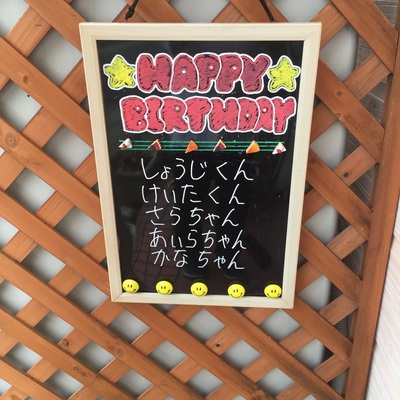 HAPPY
BIRTHDAY
しょうじくん
けいたくん
さらちゃん
あいらちゃん
かなちゃん